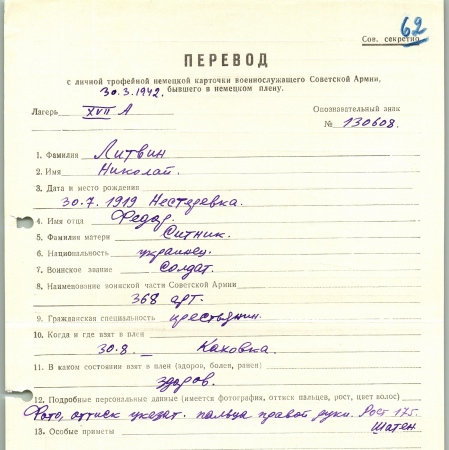 62
Сов. секретно
ПЕРЕВОД
с личной трофейной немецкой карточки военнослужащего Советской Армии,
30.3.1942. бывшего в немецком плену.
Лагерь XVII A
Опознавательный знак
№ 130608.
1. Фамилия Литвин
2. Имя Николай.
3. Дата и место рождения
30.7.1919 Нестеревка.
4. Имя отца Федор.
5. Фамилия матери Ситник.
6. Национальность украинец.
7. Воинское звание солдат.
8. Наименование воинской части Советской Армии
368 арт.
9. Гражданская специальность крестьянин.
10. Когда и где взят в плен
30.8. — Каховка.
11. В каком состоянии взят в плен (здоров, болен, ранен)
здоров.
12. Подробные персональные данные (имеется фотография, оттиск пальцев, рост, цвет волос)
Фото, оттиск указат. пальца правой руки. Рост 175.
13. Особые приметы Шатен.